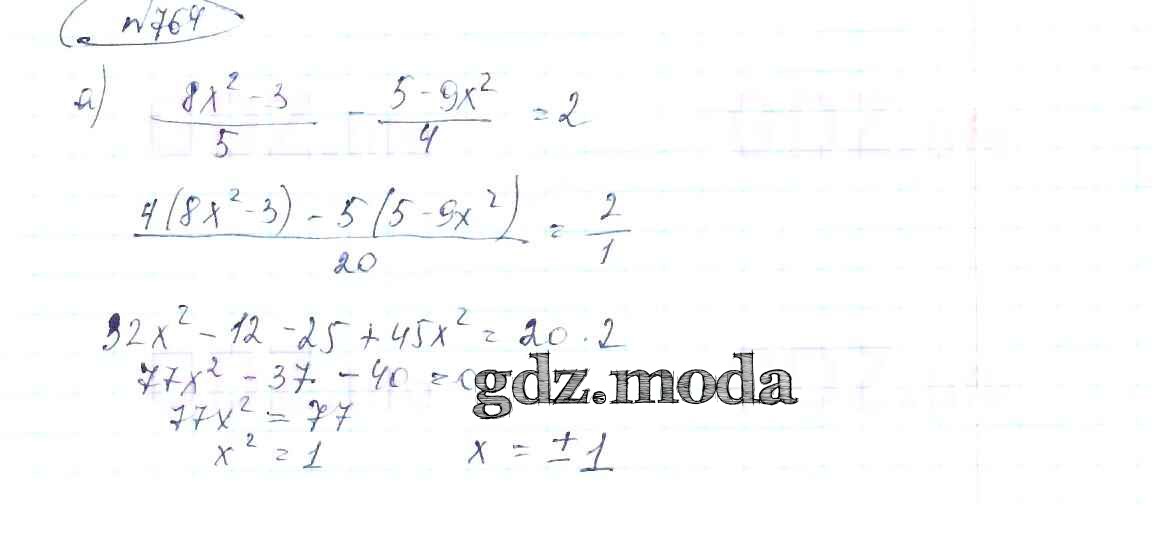 №764
а) (8x² - 3)/5 - (5 - 9x²)/4 = 2
(4(8x² - 3) - 5(5 - 9x²))/20 = 2/1
32x² - 12 - 25 + 45x² = 20 · 2
77x² - 37 - 40 = 0
gdz.moda
77x² = 77
x² = 1 x = ±1